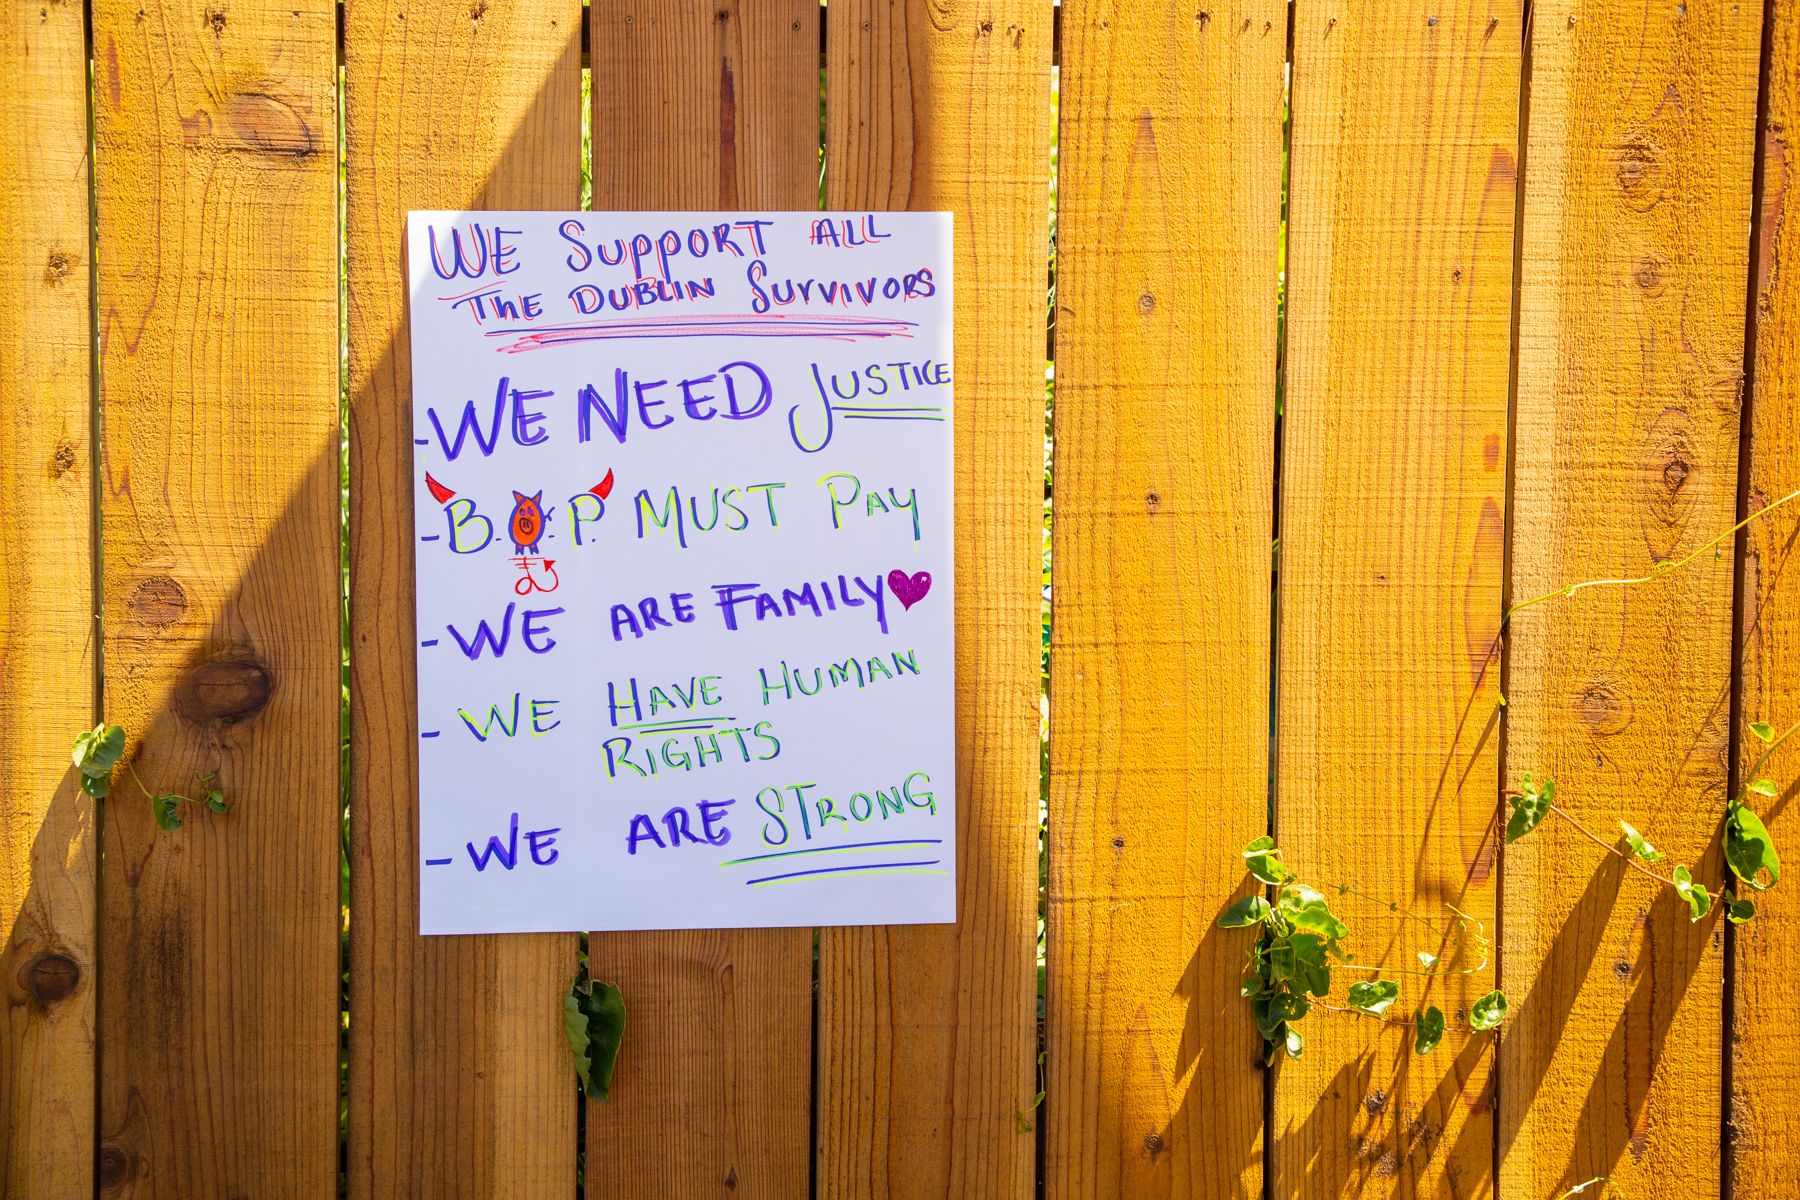 WE SUPPORT ALL
THE DUBLIN SURVIVORS
- WE NEED JUSTICE
- B.O.P. MUST PAY
- WE ARE FAMILY
- WE HAVE HUMAN
RIGHTS
- WE ARE STRONG